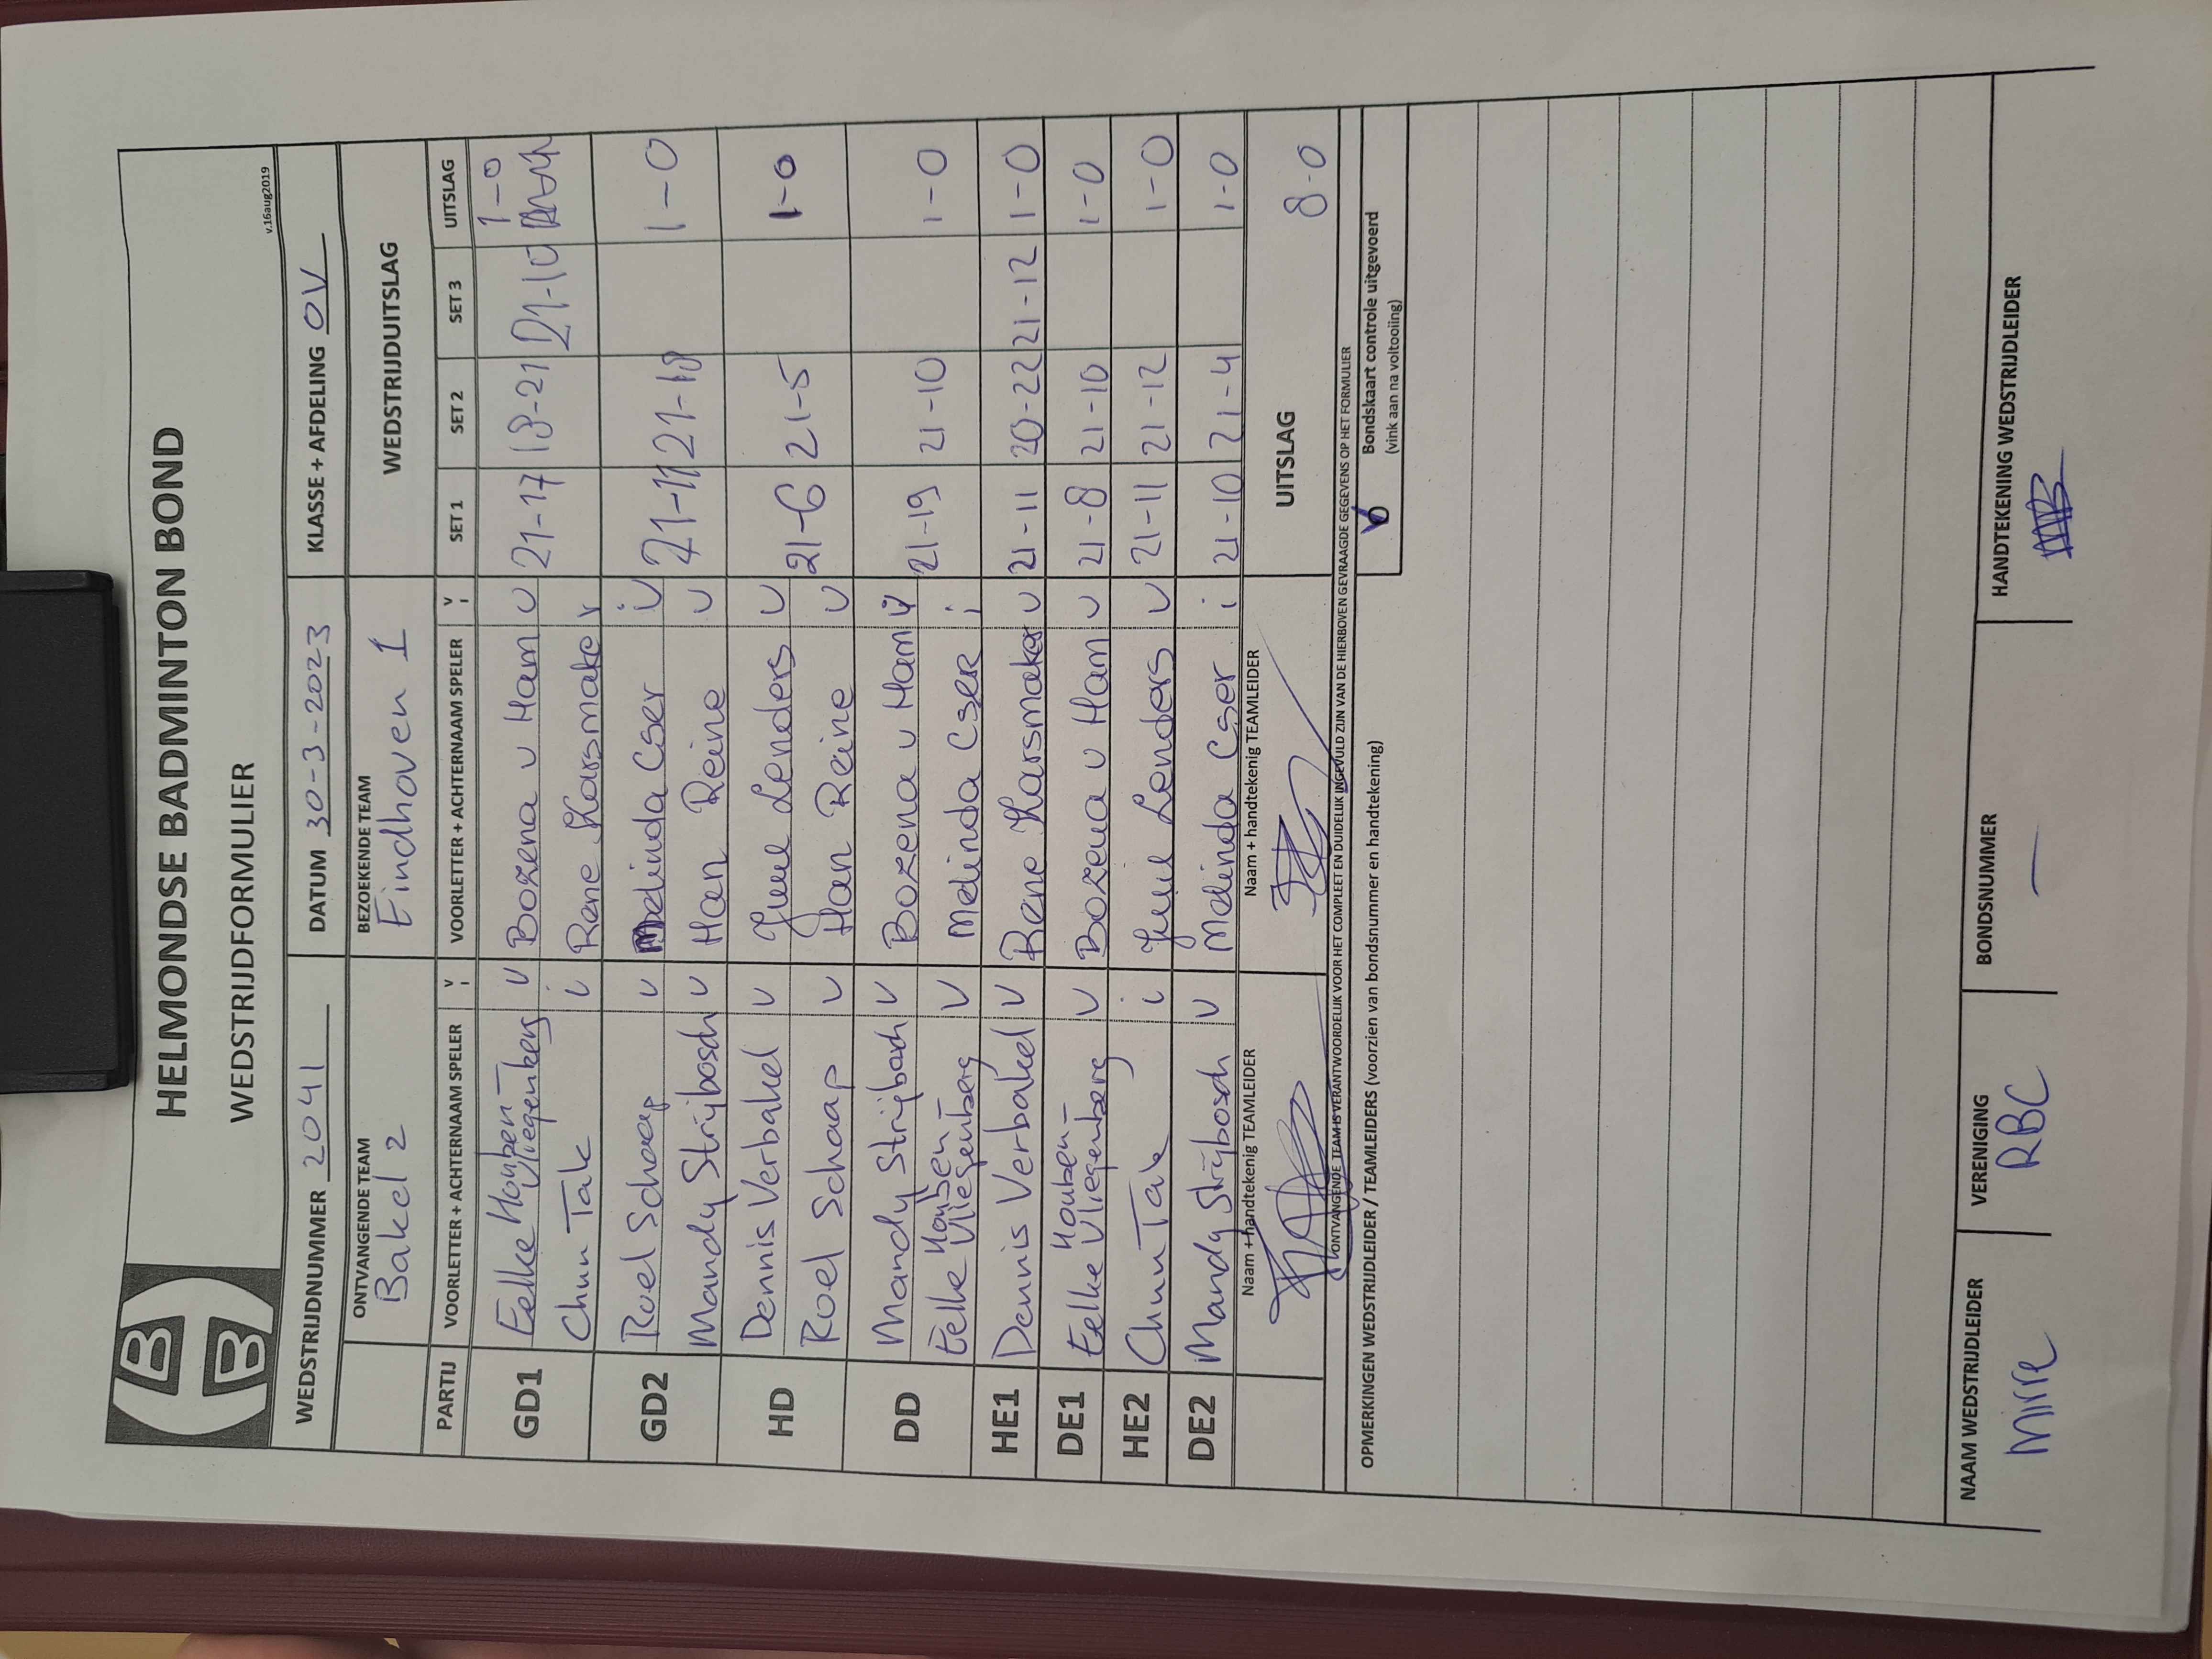 HELMONDSE BADMINTON BOND
WEDSTRIJDFORMULIER
v.16aug2019
WEDSTRIJDNUMMER 2041 DATUM 30-3-2023 KLASSE + AFDELING OV
ONTVANGENDE TEAM BEZOEKENDE TEAM WEDSTRIJDUITSLAG
Bakel 2 Eindhoven 1
PARTIJ VOORLETTER + ACHTERNAAM SPELER V I VOORLETTER + ACHTERNAAM SPELER V I SET 1 SET 2 SET 3 UITSLAG
GD1 Eelke Houben- Vliegenberg V Bozena v Ham V 21-17 18-21 21-10 1-0
Chun Tak i Rene Karsmaker V
GD2 Roel Schaap V Melinda Cser i V 21-11 21-18 1-0
Mandy Strijbosch V Han Reine V
HD Dennis Verbakel V Juul Lenders V 21-6 21-5 1-0
Roel Schaap V Han Reine V
DD Mandy Strijbosch V Bozena v Ham V 21-19 21-10 1-0
Eelke Houben Vliegenberg V Melinda Cser i
HE1 Dennis Verbakel V Rene Karsmaker V 21-11 20-22 21-12 1-0
DE1 Eelke Houben- Vliegenberg V Bozena v Ham V 21-8 21-10 1-0
HE2 Chun Tak i Juul Lenders V 21-11 21-12 1-0
DE2 Mandy Strijbosch V Melinda Cser i 21-10 21-4 1-0
Naam + handtekenig TEAMLEIDER Naam + handtekenig TEAMLEIDER UITSLAG 8-0
ONTVANGENDE TEAM IS VERANTWOORDELIJK VOOR HET COMPLEET EN DUIDELIJK INGEVULD ZIJN VAN DE HIERBOVEN GEVRAAGDE GEGEVENS OP HET FORMULIER
OPMERKINGEN WEDSTRIJDLEIDER / TEAMLEIDERS (voorzien van bondsnummer en handtekening)
Bondskaart controle uitgevoerd
(vink aan na voltooiing)
NAAM WEDSTRIJDLEIDER VERENIGING BONDSNUMMER HANDTEKENING WEDSTRIJDLEIDER
Mirre RBC —